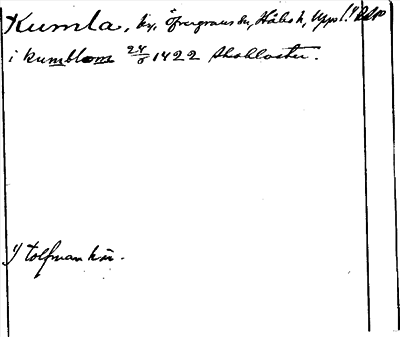 Kumla, by, Öfvergrans sn, Håbo h, Upps l.
i kumblom 24/5 1422 Skokloster.
1) tolfman här.